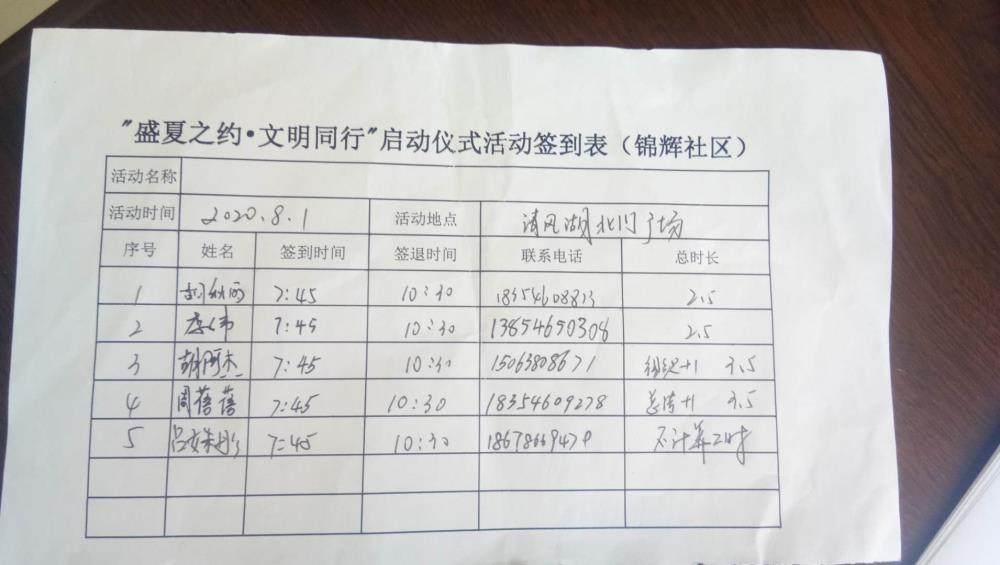 "盛夏之约·文明同行"启动仪式活动签到表（锦辉社区）
活动名称
活动时间 2020.8.1 活动地点 清风湖北门广场
序号 姓名 签到时间 签退时间 联系电话 总时长
1 7:45 10:30 2.5
2 李伟 7:45 10:30 13854650308 2.5
3 胡阿杰 7:45 10:30 15063808671 组织+1 3.5
4 周蓓蓓 7:45 10:30 18354609278 +1 3.5
5 7:45 10:30 不计算工时